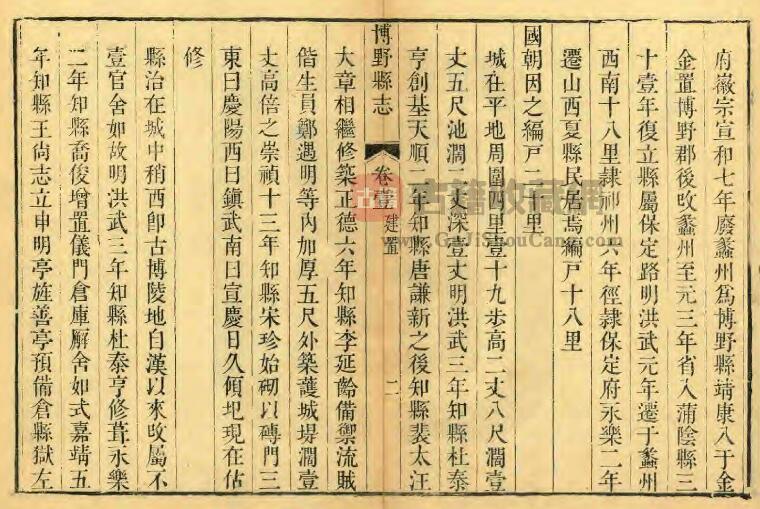 府徽宗宣和七年廢蠡州爲博野縣靖康入于金
金置博野郡後攺蠡州至元三年省入蒲陰縣三
十壹年復立縣屬保定路明洪武元年遷于蠡州
西南十八里隸祁州六年徑隸保定府永樂二年
遷山西夏縣民居焉編戶十八里
國朝因之編戶二十里
城在平地周圍四里壹十九步高二丈八尺濶壹
丈五尺池濶二丈深壹丈明洪武三年知縣杜泰
亨創基天順二年知縣唐謙新之後知縣裴太汪
博野縣志
卷壹 建置
二
大章相繼修築正德六年知縣李延齡備禦流賊
偕生員鄭遇明等內加厚五尺外築護城堤濶壹
丈高倍之崇禎十三年知縣宋珍始砌以磚門三
東曰慶陽西曰鎮武南曰宣慶日久傾圯現在估
修
縣治在城中稍西卽古博陵地自漢以來攺屬不
壹官舍如故明洪武三年知縣杜泰亨修葺永樂
二年知縣喬俊增置儀門倉庫廨舍如式嘉靖五
年知縣王尙志立申明亭旌善亭預備倉縣獄左
古籍收藏網
www.GuJiShouCang.com